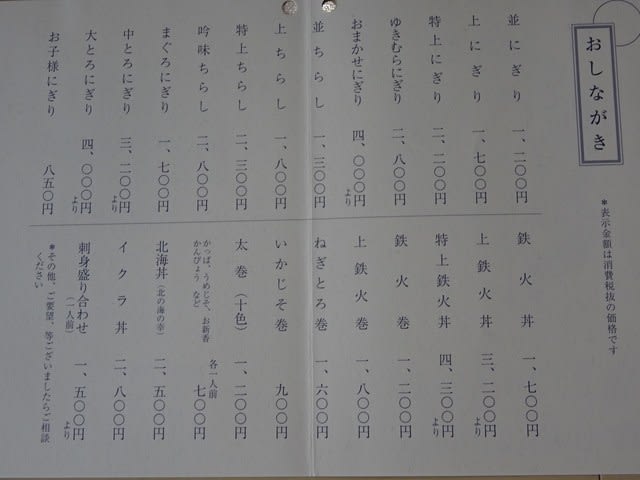 おしながき
＊表示金額は消費税抜の価格です
並にぎり 一、二〇〇円
上にぎり 一、七〇〇円
特上にぎり 二、二〇〇円
ゆきむらにぎり 二、八〇〇円
おまかせにぎり 四、〇〇〇円より
並ちらし 一、三〇〇円
上ちらし 一、八〇〇円
特上ちらし 二、三〇〇円
吟味ちらし 二、八〇〇円
まぐろにぎり 一、七〇〇円
中とろにぎり 三、二〇〇円より
大とろにぎり 四、〇〇〇円より
お子様にぎり 八五〇円
鉄火丼 一、七〇〇円
上鉄火丼 三、二〇〇円より
特上鉄火丼 四、三〇〇円より
鉄火巻 一、二〇〇円
上鉄火巻 一、八〇〇円
ねぎとろ巻 一、六〇〇円
いかじそ巻 九〇〇円
太巻（十色） 一、二〇〇円
かっぱ、うめじそ、お新香
かんぴょう など 各一人前 七〇〇円
北海丼（北の海の幸） 二、五〇〇円
イクラ丼 二、八〇〇円
刺身盛り合わせ（一人前） 一、五〇〇円より
＊その他、ご要望、等ございましたらご相談
ください